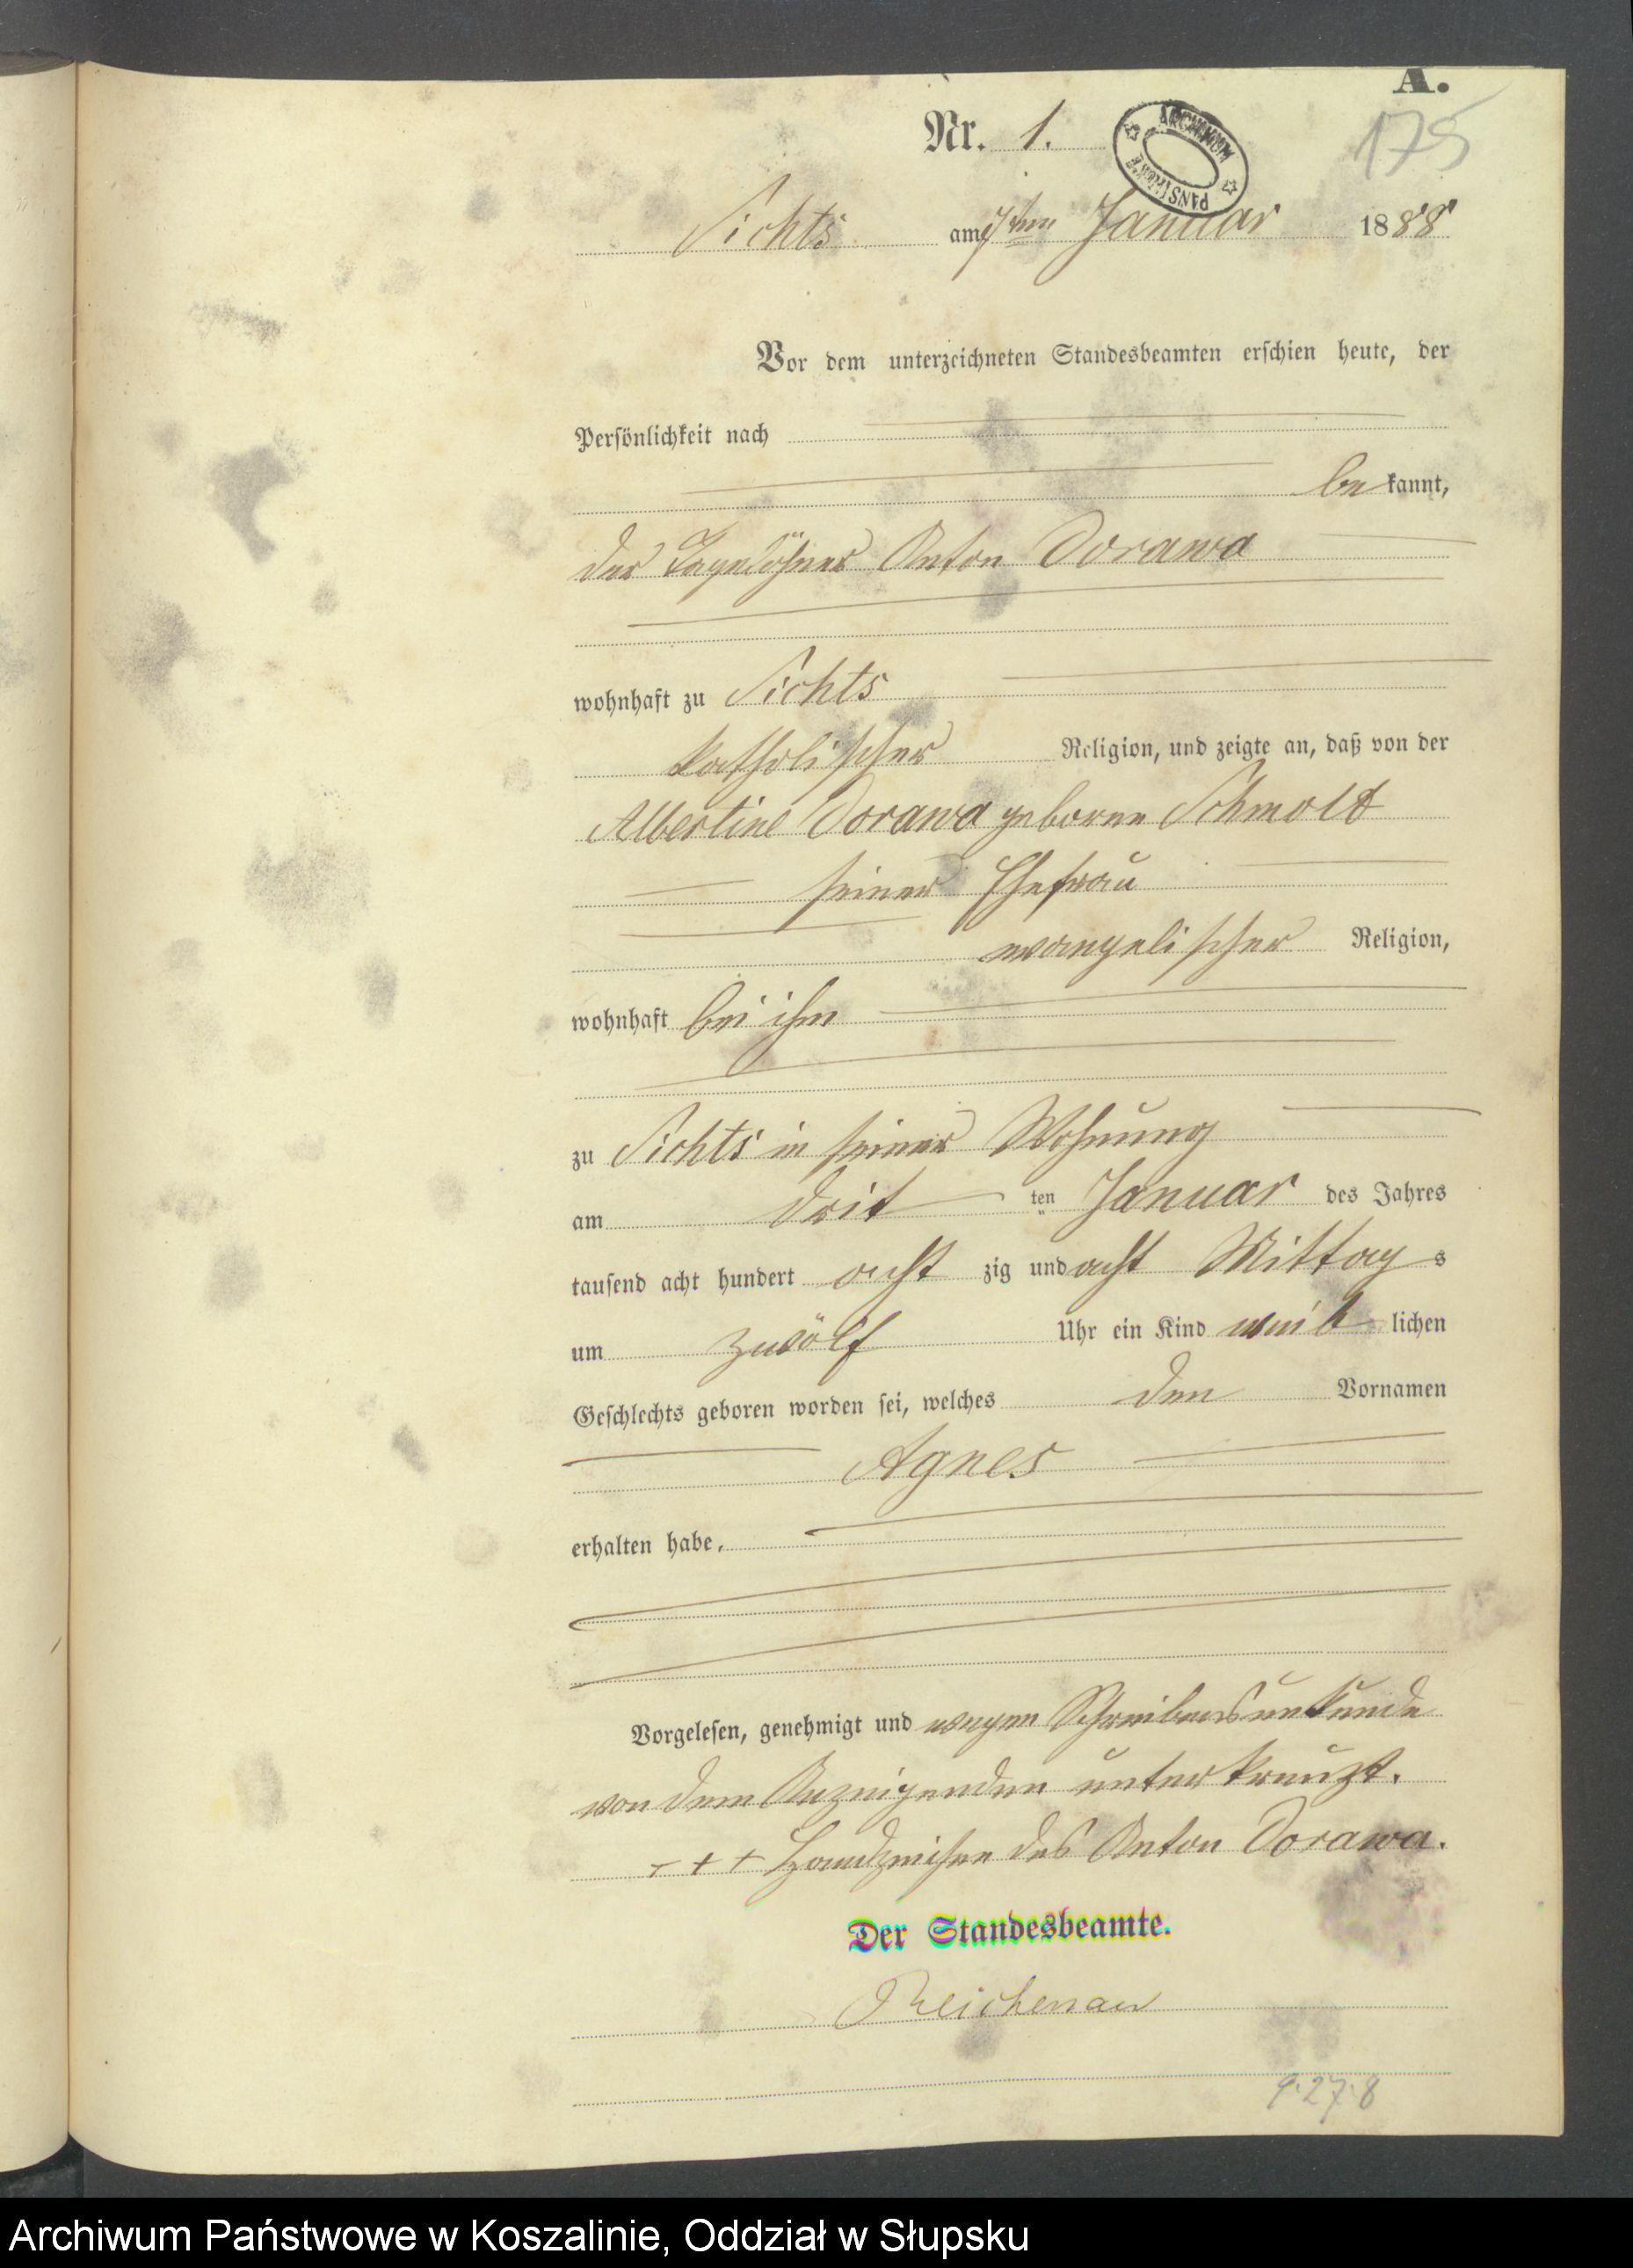 A.
Nr. 1.
ARCHIWUM PAŃSTWOWE
175
Sichts am 7ten Januar 1888
Vor dem unterzeichneten Standesbeamten erschien heute, der
Persönlichkeit nach
be kannt,
der Tagelöhner Anton Dorawa
wohnhaft zu Sichts
katholischer Religion, und zeigte an, daß von der
Albertine Dorawa geborne Schmolt
seiner Ehefrau
evangelischer Religion,
wohnhaft bei ihm
zu Sichts in seiner Wohnung
am drit ten Januar des Jahres
tausend acht hundert acht zig und acht Mittag s
um zwölf Uhr ein Kind weib lichen
Geschlechts geboren worden sei, welches den Vornamen
Agnes
erhalten habe.
Vorgelesen, genehmigt und wegen Schreibensunkunde
von dem Anzeigenden unterkreuzt.
+ + + Handzeichen des Anton Dorawa.
Der Standesbeamte.
Reichenau
9.27.8
Archiwum Państwowe w Koszalinie, Oddział w Słupsku